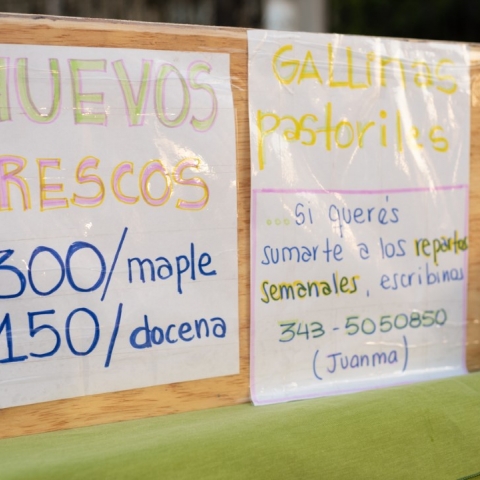 HUEVOS
RESCOS
300/maple
150/docena
GALLINAS
pastoriles
...Si querés
sumarte a los repartos
semanales, escribinos
343-5050850
(Juanma)